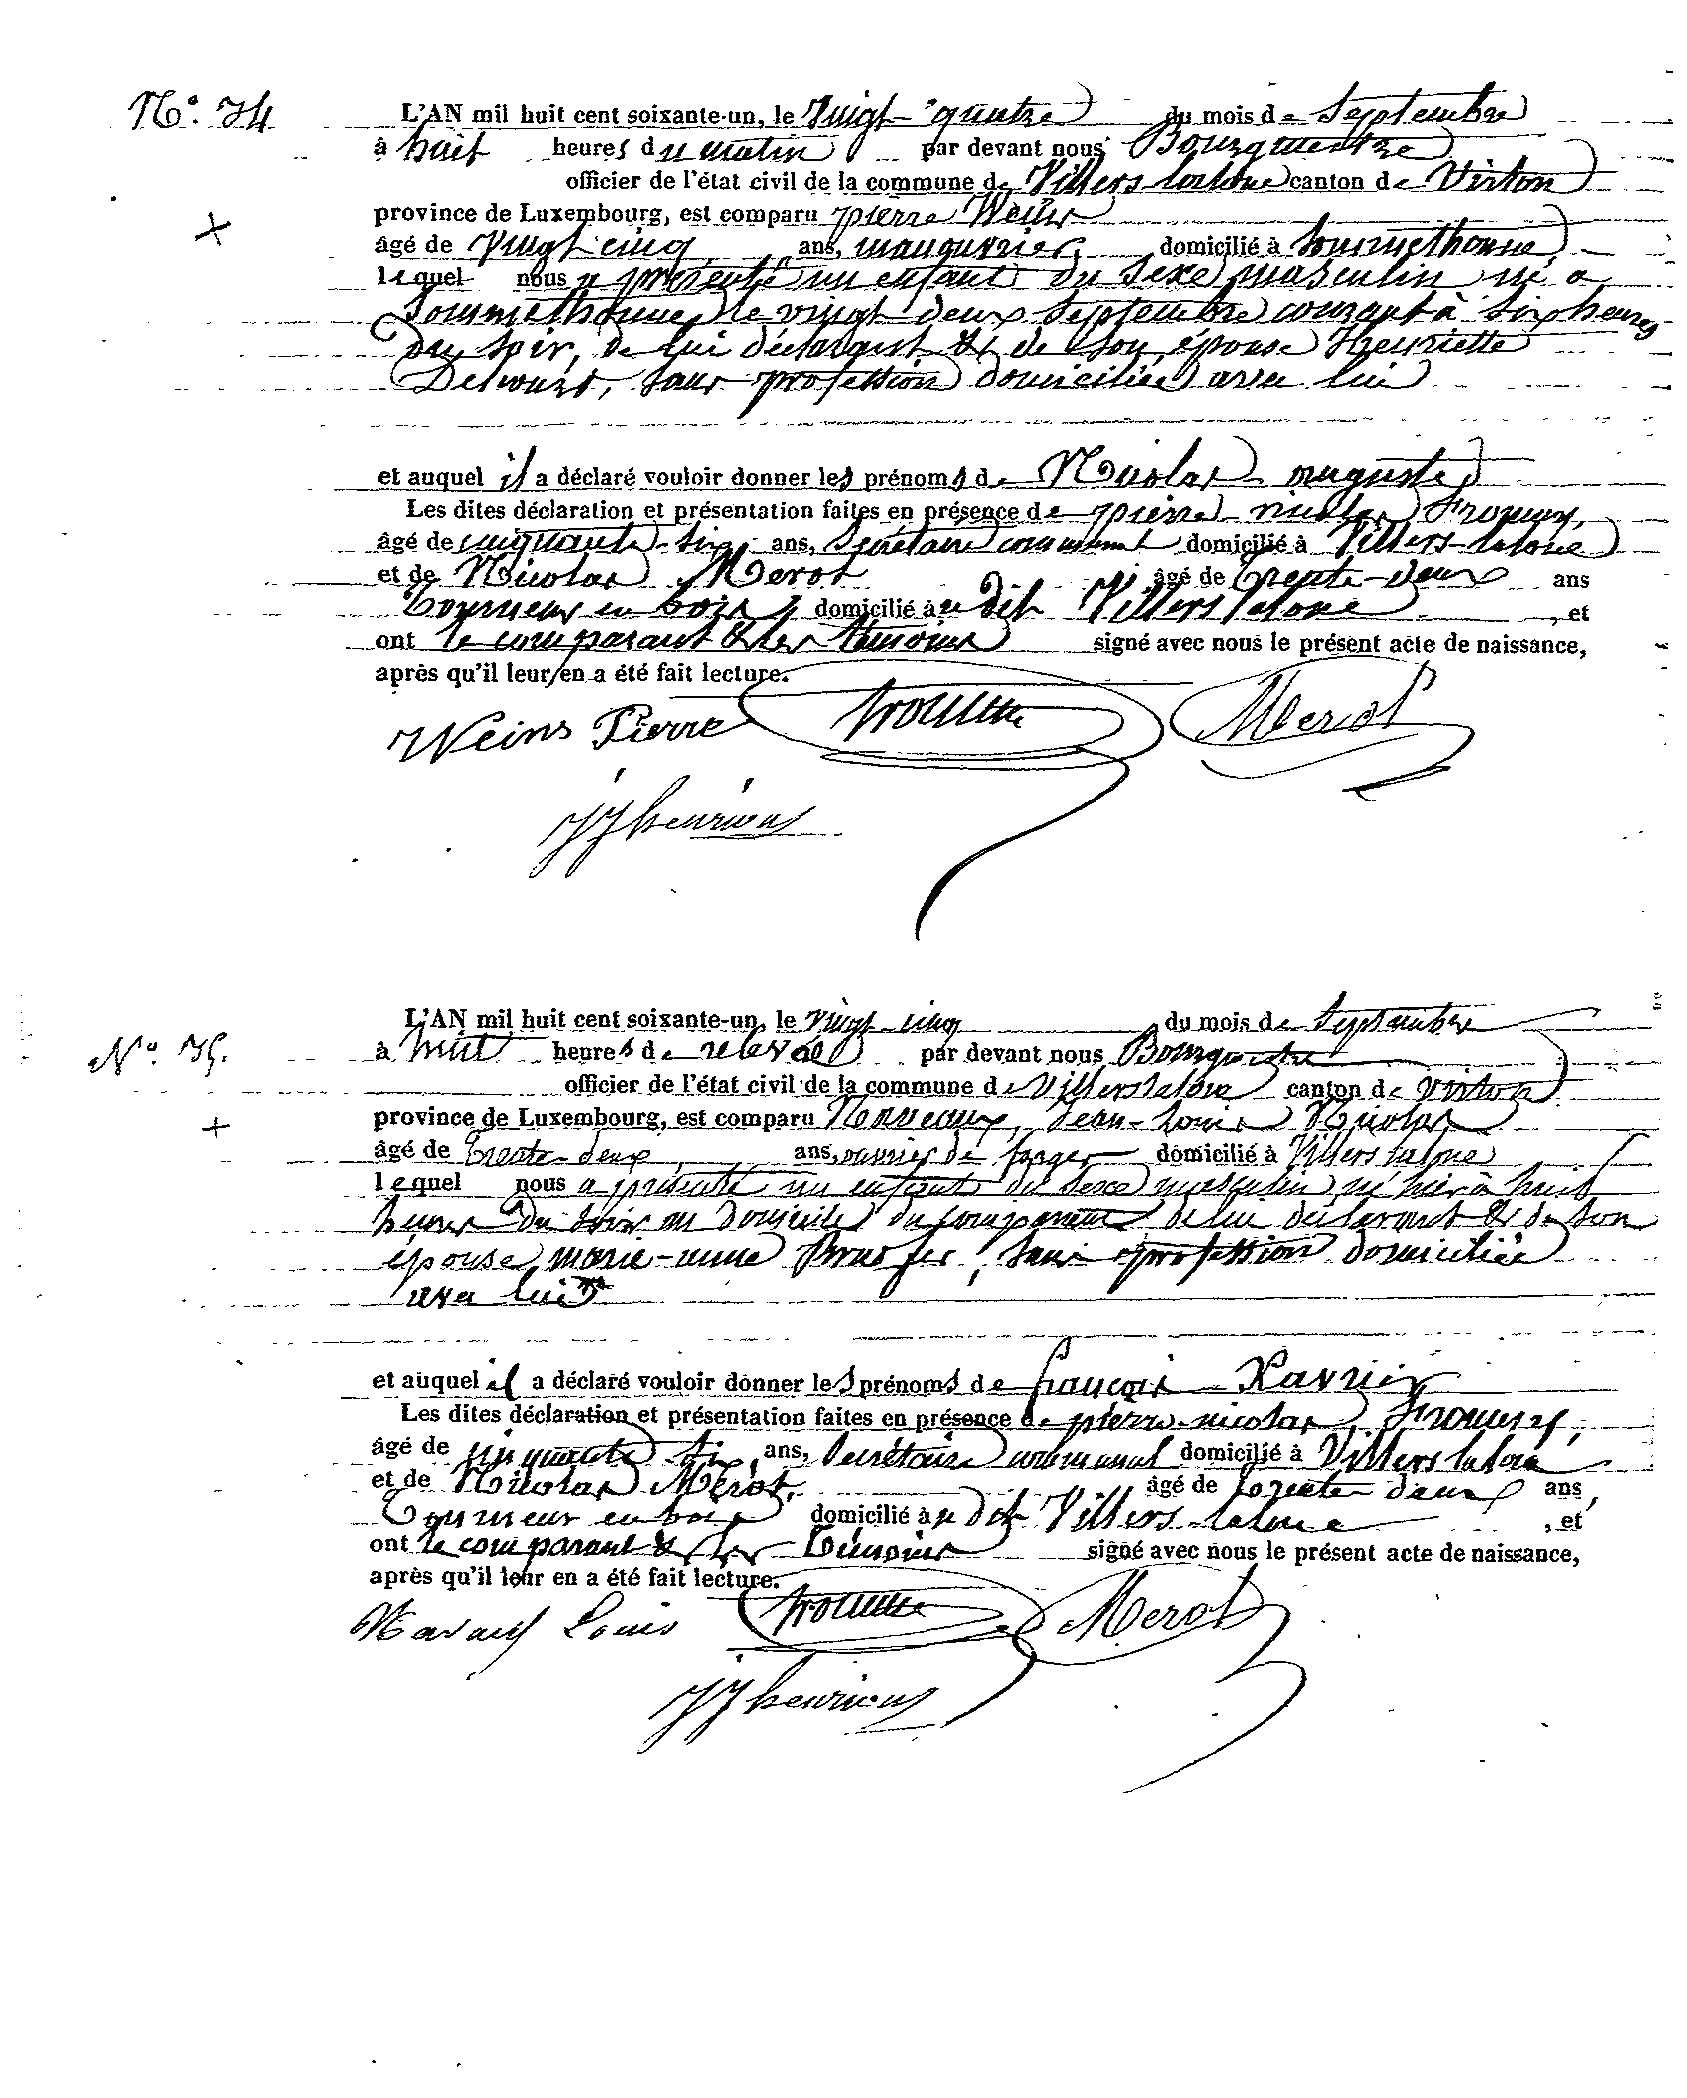 N°. 34
L'AN mil huit cent soixante-un, le Vingt-quatre du mois de Septembre
à huit heures du matin par devant nous Bourgmestre
officier de l'état civil de la commune de Villers laloue canton de Virton
province de Luxembourg, est comparu pierre Weins
âgé de Vingt cinq ans, manouvrier, domicilié à Sommethonne,
lequel nous a présenté un enfant du sexe masculin né a
Sommethonne le vingt deux septembre courant à six heures
du soir, de lui déclarant & de son épouse Henriette
Delcourt, sans profession domiciliée avec lui
et auquel il a déclaré vouloir donner les prénoms de Nicolas auguste
Les dites déclaration et présentation faites en présence de pierre nicolas
âgé de cinquante-six ans, secrétaire communal domicilié à Villers-laloue
et de Nicolas Merot âgé de trente-deux ans
Tourneur en bois, domicilié au dit Villers laloue, et
ont le comparant & les témoins signé avec nous le présent acte de naissance,
après qu'il leur en a été fait lecture.
Weins Pierre Merot
JJ henrion
N°. 35.
L'AN mil huit cent soixante-un, le vingt cinq du mois de Septembre
à huit heures de relevée par devant nous Bourgmestre
officier de l'état civil de la commune de Villers laloue canton de Virton
province de Luxembourg, est comparu Jean-Louis Nicolas
âgé de Trente-deux ans, ouvrier de forges domicilié à Villers laloue
lequel nous a présenté un enfant du sexe masculin né hier à huit
heures du soir au domicile du comparant de lui déclarant & de son
épouse marie-anne sans profession domiciliée
avec lui
et auquel il a déclaré vouloir donner les prénoms de françois Xavier
Les dites déclaration et présentation faites en présence de pierre-nicolas
âgé de cinquante six ans, secrétaire communal domicilié à Villers laloue
et de Nicolas Merot, âgé de trente deux ans,
Tourneur en bois domicilié au dit Villers-laloue, et
ont le comparant & les témoins signé avec nous le présent acte de naissance,
après qu'il leur en a été fait lecture.
Louis Merot
JJ henrion